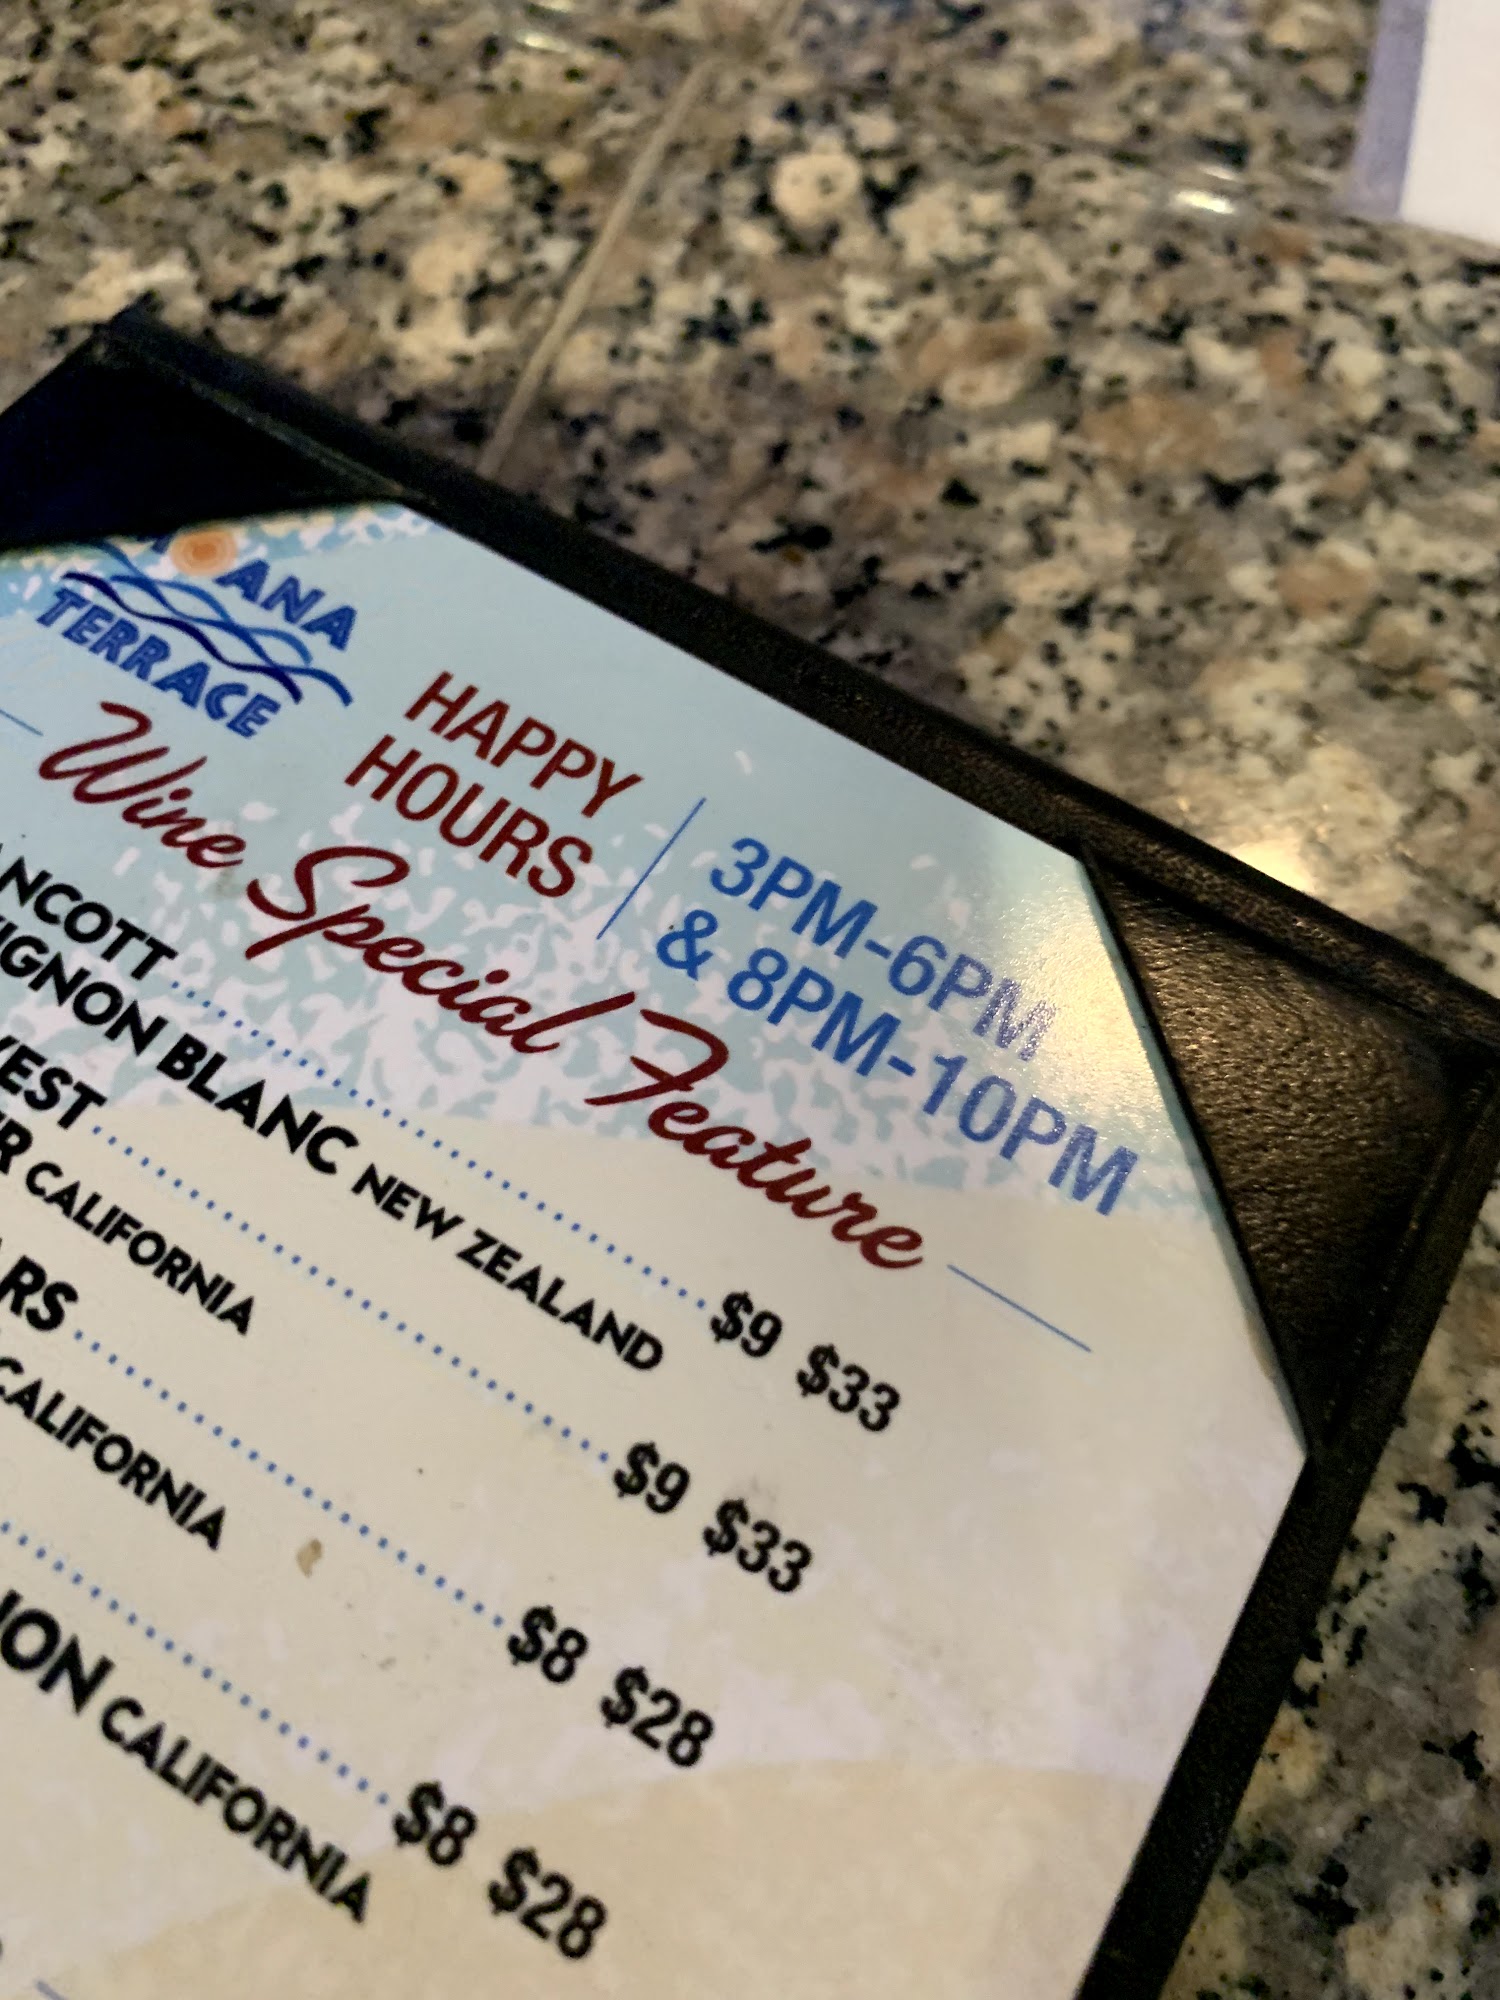 ANA
TERRACE
HAPPY
HOURS
3PM-6PM
& 8PM-10PM
Wine Special Feature
NCOTT $9 $33
IGNON BLANC NEW ZEALAND
EST $9 $33
ER CALIFORNIA
ARS $8 $28
CALIFORNIA
$8 $28
ION CALIFORNIA